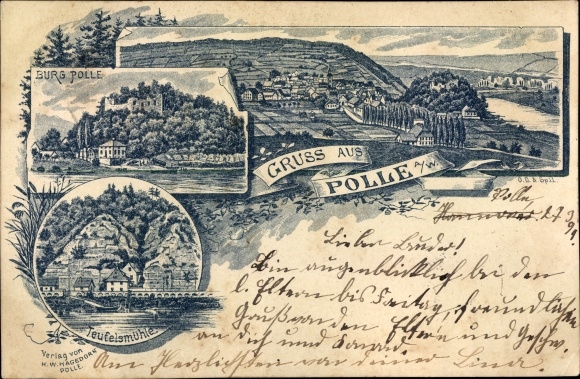 BURG POLLE
GRUSS AUS
POLLE A/W.
Teufelsmühle.
Verlag von
H. W. HAGEDORN
POLLE.
Polle,
Hannover, 27.3
Lieber Bruder!
Bin augenblicklich bei den
l. Eltern bis Freitag, freundlichen
Gruß von den Eltern und Geschw.
an dich und
Am Herzlichsten von deiner Lina.